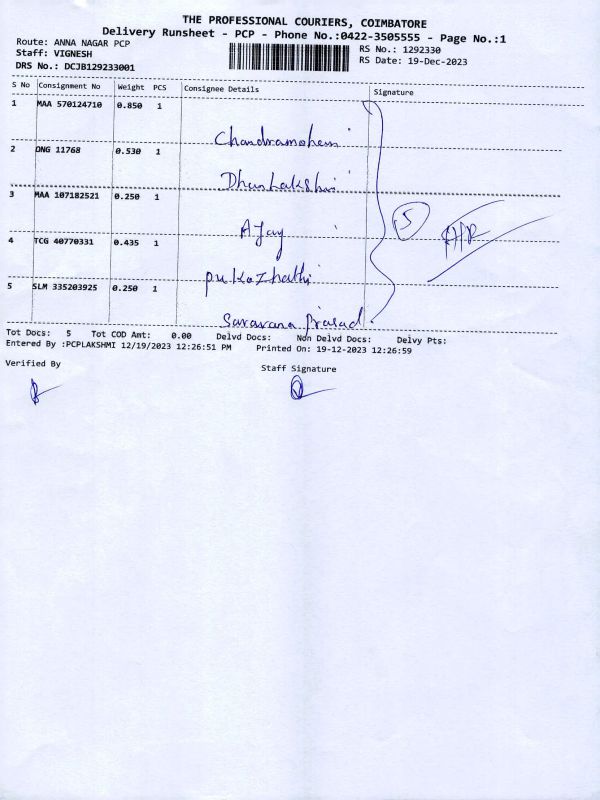 THE PROFESSIONAL COURIERS, COIMBATORE
Delivery Runsheet - PCP - Phone No.:0422-3505555 - Page No.:1
Route: ANNA NAGAR PCP
RS No.: 1292330
Staff: VIGNESH
RS Date: 19-Dec-2023
DRS No.: DCJB129233001
S No Consignment No Weight PCS Consignee Details Signature
1 MAA 570124710 0.850 1
Chandramohan
2 ONG 11768 0.530 1
Dhanalakshmi
3 MAA 107182521 0.250 1
Ajay
4 TCG 40770331 0.435 1
5
5 SLM 335203925 0.250 1
Saravana Prasad.
Tot Docs: 5 Tot COD Amt: 0.00 Delvd Docs: Non Delvd Docs: Delvy Pts:
Entered By :PCPLAKSHMI 12/19/2023 12:26:51 PM Printed On: 19-12-2023 12:26:59
Verified By
Staff Signature